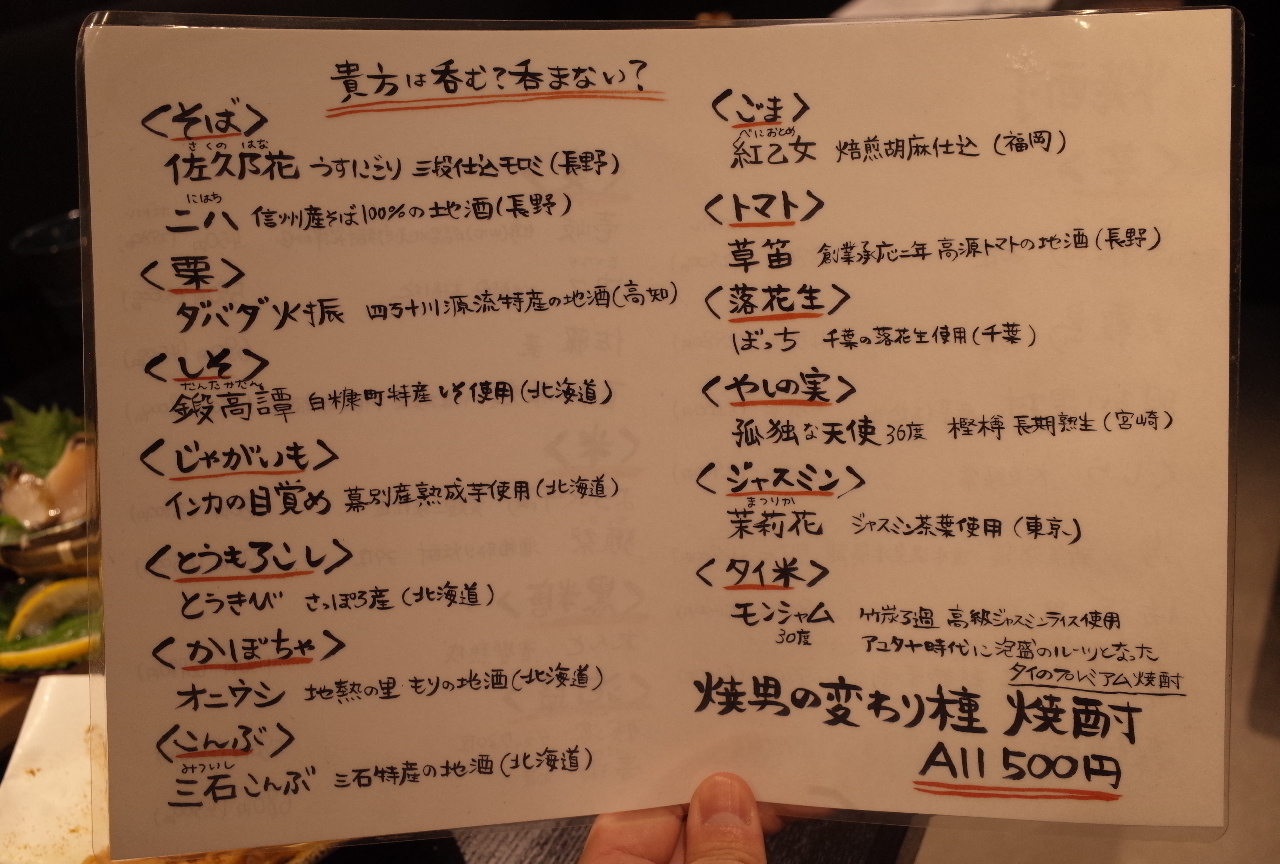 貴方は呑む?呑まない?
<そば>
さくの はな
佐久乃花 うすにごり 三段仕込モロミ(長野)
にはち
二八 信州産そば100%の地酒(長野)
<栗>
ダバダ火振 四万十川源流特産の地酒(高知)
<しそ>
たんたかたん
鍛高譚 白糠町特産しそ使用(北海道)
<じゃがいも>
インカの目覚め 幕別産熟成芋使用(北海道)
<とうもろこし>
とうきび さっぽろ産(北海道)
<かぼちゃ>
オニウシ 地熱の里もりの地酒(北海道)
<こんぶ>
みついし
三石こんぶ 三石特産の地酒(北海道)
<ごま>
べにおとめ
紅乙女 焙煎胡麻仕込(福岡)
<トマト>
草笛 創業承応二年 高源トマトの地酒(長野)
<落花生>
ぼっち 千葉の落花生使用(千葉)
<やしの実>
孤独な天使36度 樫樽 長期熟生(宮崎)
<ジャスミン>
まつりか
茉莉花 ジャスミン茶葉使用(東京)
<タイ米>
モンシャム 竹炭ろ過 高級ジャスミンライス使用
30度 アユタヤ時代に泡盛のルーツとなった
タイのプレミアム焼酎
焼男の変わり種 焼酎
All 500円